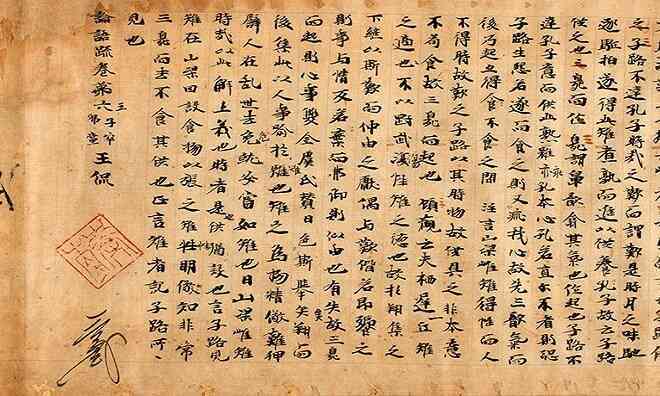 之子路不達孔子時哉之歎而謂歎是時月之味馳
逐駈拍遂得此雉煮熟而進以供養孔子故云子路
供之也三臭而作臭謂鼻歆翕其氣也作起也子路不
達孔子意而供此熟雞永亦孔本心孔若直尔不者則恐
子路生怨若遂而食之則又乖我心故先三臭氣而
後乃起亦得食不食之間 注言山梁雌雉得性而人
不得時故歎之子路以其時物故供具之非本意
不苟食故三臭而起也 顧歡云夫栖遲丘雉
之適也不以剛武傷性雉之德也故於翔集之
下継以斯歎而仲由之獻偶与歎偕若即饗之
則事与情反若棄而弗御則似由也有失故三臭
而起則心事雙全虞氏賛曰色斯擧矣翔而
後集此以人事喩於雉也雉之為物精儆難狎
譬人在乱世去危就安當如雉也曰山梁雌雉
時哉以此解上義也時者是供猶設也言子路見
雉在山梁因設食物以張之雉性明儆知非常
三臭而去不食其供也正言雉者記子路所
見也
論語疏卷第六 王侃